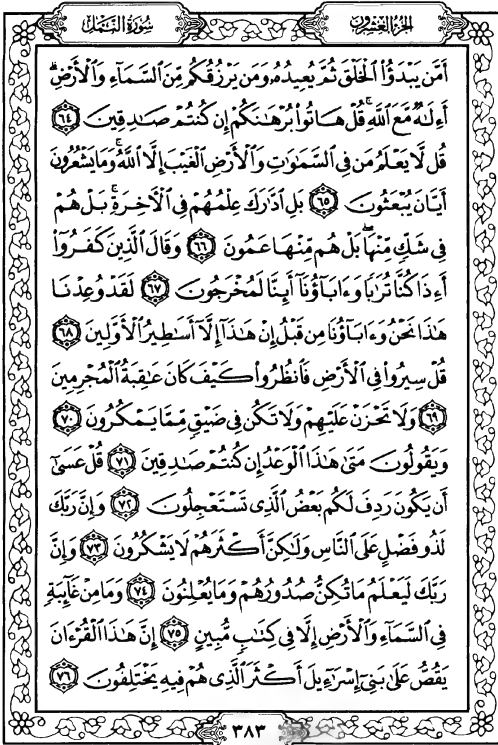 سُورَةُ النَّمْلِ
الجُزْءُ العِشْرُونَ
أَمَّن يَبْدَؤُاْ الْخَلْقَ ثُمَّ يُعِيدُهُۥ وَمَن يَرْزُقُكُم مِّنَ السَّمَآءِ وَالْأَرْضِۗ
أَءِلَٰهٌ مَّعَ اللَّهِۚ قُلْ هَاتُواْ بُرْهَٰنَكُمْ إِن كُنتُمْ صَٰدِقِينَ ٦٤
قُل لَّا يَعْلَمُ مَن فِي السَّمَٰوَٰتِ وَالْأَرْضِ الْغَيْبَ إِلَّا اللَّهُۚ وَمَا يَشْعُرُونَ
أَيَّانَ يُبْعَثُونَ ٦٥ بَلِ ادَّٰرَكَ عِلْمُهُمْ فِي الْأٓخِرَةِۚ بَلْ هُمْ
فِي شَكٍّ مِّنْهَاۖ بَلْ هُم مِّنْهَا عَمُونَ ٦٦ وَقَالَ الَّذِينَ كَفَرُوٓاْ
أَءِذَا كُنَّا تُرَٰبًا وَءَابَآؤُنَآ أَئِنَّا لَمُخْرَجُونَ ٦٧ لَقَدْ وُعِدْنَا
هَٰذَا نَحْنُ وَءَابَآؤُنَا مِن قَبْلُ إِنْ هَٰذَآ إِلَّآ أَسَٰطِيرُ الْأَوَّلِينَ ٦٨
قُلْ سِيرُواْ فِي الْأَرْضِ فَانظُرُواْ كَيْفَ كَانَ عَٰقِبَةُ الْمُجْرِمِينَ
٦٩ وَلَا تَحْزَنْ عَلَيْهِمْ وَلَا تَكُن فِي ضَيْقٍ مِّمَّا يَمْكُرُونَ ٧٠
وَيَقُولُونَ مَتَىٰ هَٰذَا الْوَعْدُ إِن كُنتُمْ صَٰدِقِينَ ٧١ قُلْ عَسَىٰٓ
أَن يَكُونَ رَدِفَ لَكُم بَعْضُ الَّذِي تَسْتَعْجِلُونَ ٧٢ وَإِنَّ رَبَّكَ
لَذُو فَضْلٍ عَلَى النَّاسِ وَلَٰكِنَّ أَكْثَرَهُمْ لَا يَشْكُرُونَ ٧٣ وَإِنَّ
رَبَّكَ لَيَعْلَمُ مَا تُكِنُّ صُدُورُهُمْ وَمَا يُعْلِنُونَ ٧٤ وَمَا مِنْ غَآئِبَةٍ
فِي السَّمَآءِ وَالْأَرْضِ إِلَّا فِي كِتَٰبٍ مُّبِينٍ ٧٥ إِنَّ هَٰذَا الْقُرْءَانَ
يَقُصُّ عَلَىٰ بَنِيٓ إِسْرَٰٓءِيلَ أَكْثَرَ الَّذِي هُمْ فِيهِ يَخْتَلِفُونَ ٧٦
٣٨٣